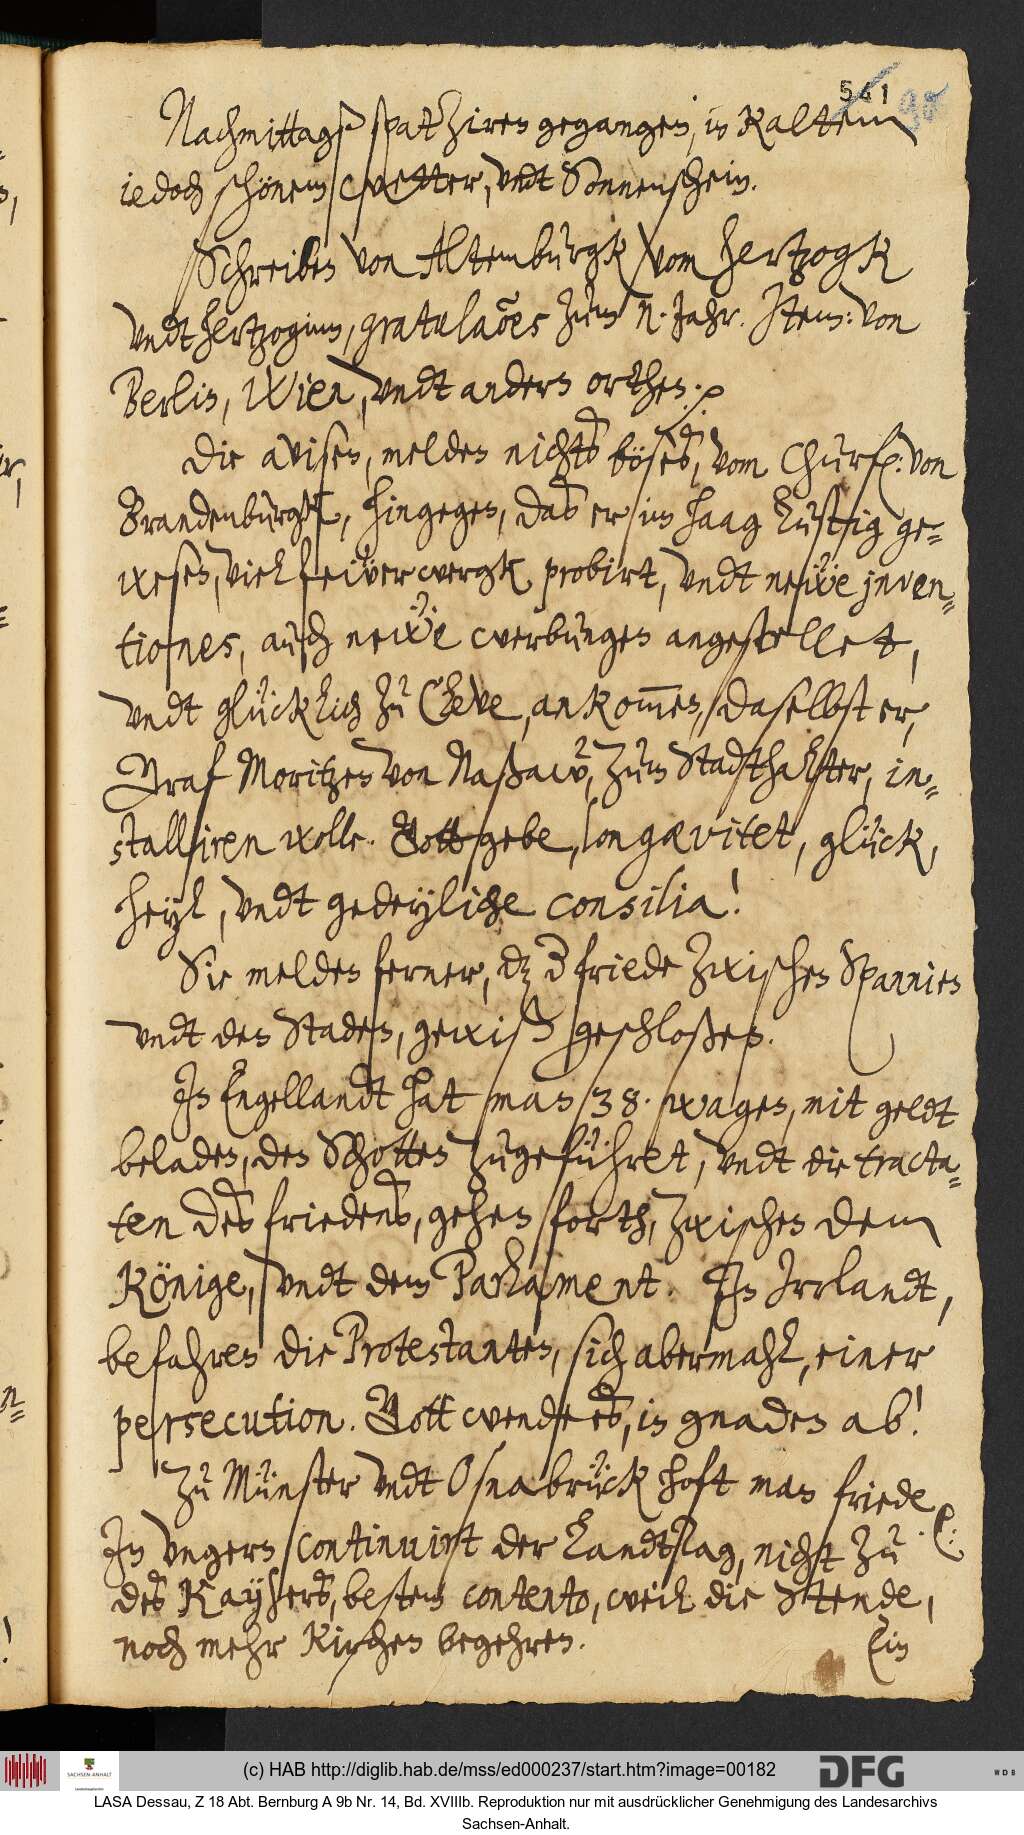 541
90
Nachmittags spatziren gegangen, in kaltem
iedoch schönem wetter, undt Sonnenschein.
Schreiben von Altemburgk vom hertzogk
undt hertzoginn, gratulaões zum N. Jahr. Item: von
Berlin, Wien, undt andern orthen. p
Die avisen, melden nichts böses, vom Churf: von
Brandenburgk, hingegen, das er im Haag lustig ge-
wesen, viel feüerwergk probirt, undt neẅe inven-
tiones, auch neẅe werbungen angestellet,
undt glücklich zu Cleve, ankom̅en, daselbst er,
Graf Moritzen von Naßaw, zum Stadthalter, in-
stalliren wolle. Gott gebe, longævitet, glück,
heyl, undt gedeyliche consilia!
Sie melden ferner, dz d friede zwischen Spannien
undt den Staden, gewiß geschloßen.
In Engellandt hat man 38. wagen, mit geldt
beladen, den Schotten zugeführet, undt die tracta-
ten des friedens, gehen forth, zwischen dem
Könige, undt dem Parlament. In Irrlandt,
befahren die Protestanten, sich abermahl, einer
persecution. Gott wende es, in gnaden ab!
Zu Münster undt Osnabrück hoft man friede p:
In Ungern continuirt der Landttag, nicht zu
des Kaysers, bestem contento, weil die Stende,
noch mehr Kirchen begehren.
Ein
(c) HAB http://diglib.hab.de/mss/ed000237/start.htm?image=00182
SACHSEN-ANHALT
DFG
WDB
LASA Dessau, Z 18 Abt. Bernburg A 9b Nr. 14, Bd. XVIIIb. Reproduktion nur mit ausdrücklicher Genehmigung des Landesarchivs
Sachsen-Anhalt.